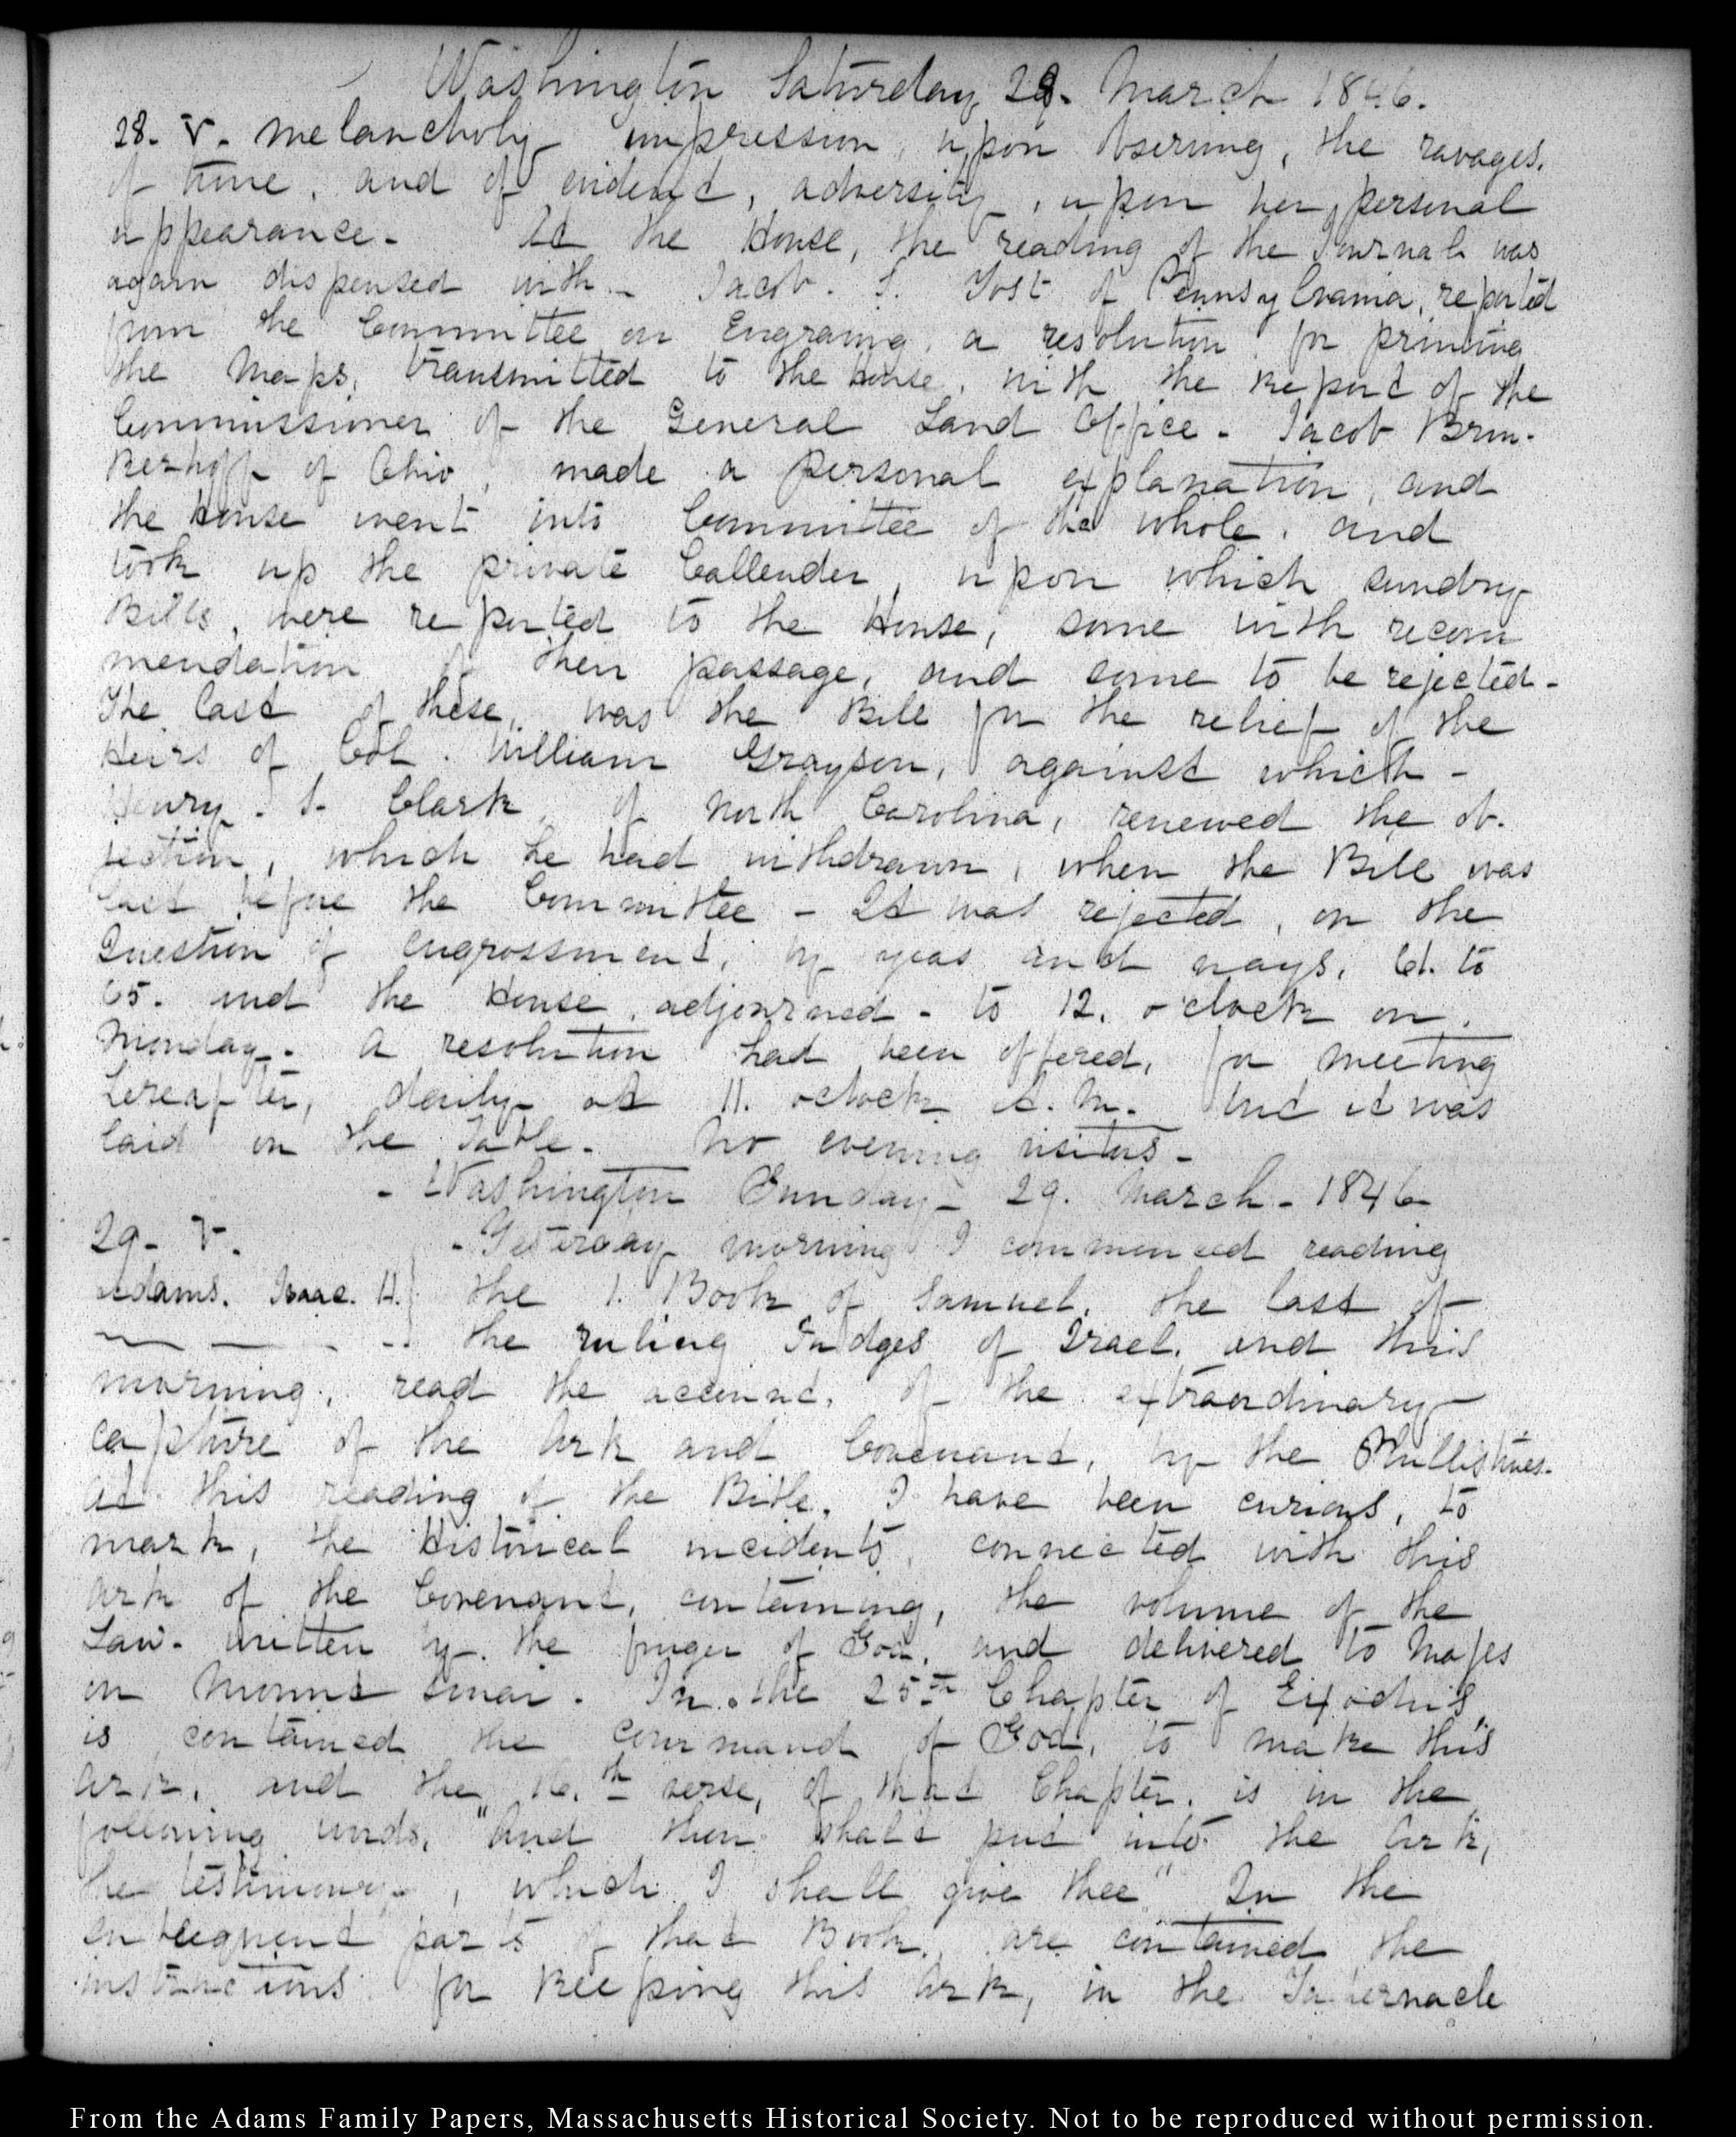 Washington Saturday 28. March 1846.
28. V. melancholy impression, upon observing, the ravages,
of time, and of evident, adversity, upon her personal
appearance. At the House, the reading of the Journal was
again dispensed with. Jacob. S. Yost of Pennsylvania, reported
from the Committee on Engraving, a resolution for printing
the Maps, transmitted to the house, with the report of the
Commissioner of the General Land Office. Jacob Brin-
kerhoff of Ohio, made a personal explanation, and
the house went into Committee of the whole, and
took up the private Callender, upon which sundry
Bills, were reported to the House, some with recom
mendation of their passage, and some to be rejected.
The last of these, was the Bill for the relief of the
Heirs of Col. William Grayson, against which -
Henry. S. Clark, of North Carolina, renewed the ob-
jection, which he had withdrawn, when the Bill was
last before the Committee - It was rejected, on the
Question of engrossment, by yeas and nays, 61. to
65. and the House, adjourned - to 12. o'clock on,
Monday. A resolution had been offered, for meeting
hereafter, daily at 11. oclock A.M. but it was
laid on the Table. No evening visitors -
- Washington Sunday - 29. March - 1846
29. V. - Yesterday morning I commenced reading
Adams. Isaac. H.} the 1. Book of Samuel, the last of
the ruling Judges of Israel, and this
morning, read the account, of the extraordinary
capture of the Ark and Covenant, by the Phillistines.
At this reading of the Bible, I have been curious, to
mark, the Historical incidents, connected with this
Ark of the Covenant, containing, the volume of the
Law. written by. the finger of God, and delivered to Moses
on Mount Sinai. In the 25th Chapter of Exodus,
is contained the command of God, to make this
Ark, and the 16.th verse, of that Chapter, is in the
following words, "And thou shalt put into the Ark,
the testimony, which I shall give thee" In the
subsequent parts of that Book, are contained the
instructions for keeping this Ark, in the Tabernacle
From the Adams Family Papers, Massachusetts Historical Society. Not to be reproduced without permission.